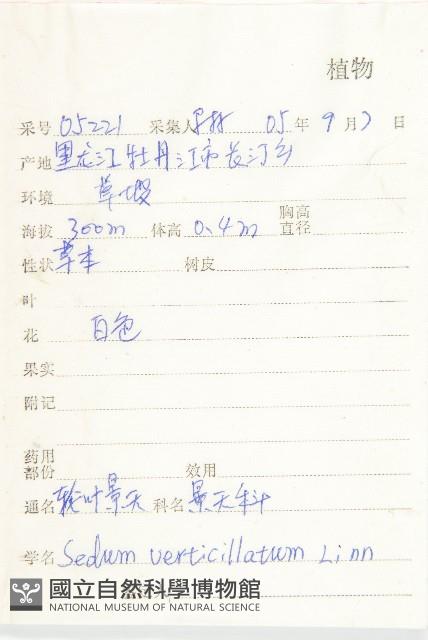 植物
采号 05221 采集人 05 年 9 月 7 日
产地 黑龙江牡丹江市长汀乡
环境 草墩
海拔 300m 体高 0.4m 胸高直径
性状 草本 树皮
叶
花 白色
果实
附记
药用部份 效用
通名 轮叶景天 科名 景天科
学名 Sedum verticillatum Linn
國立自然科學博物館
NATIONAL MUSEUM OF NATURAL SCIENCE